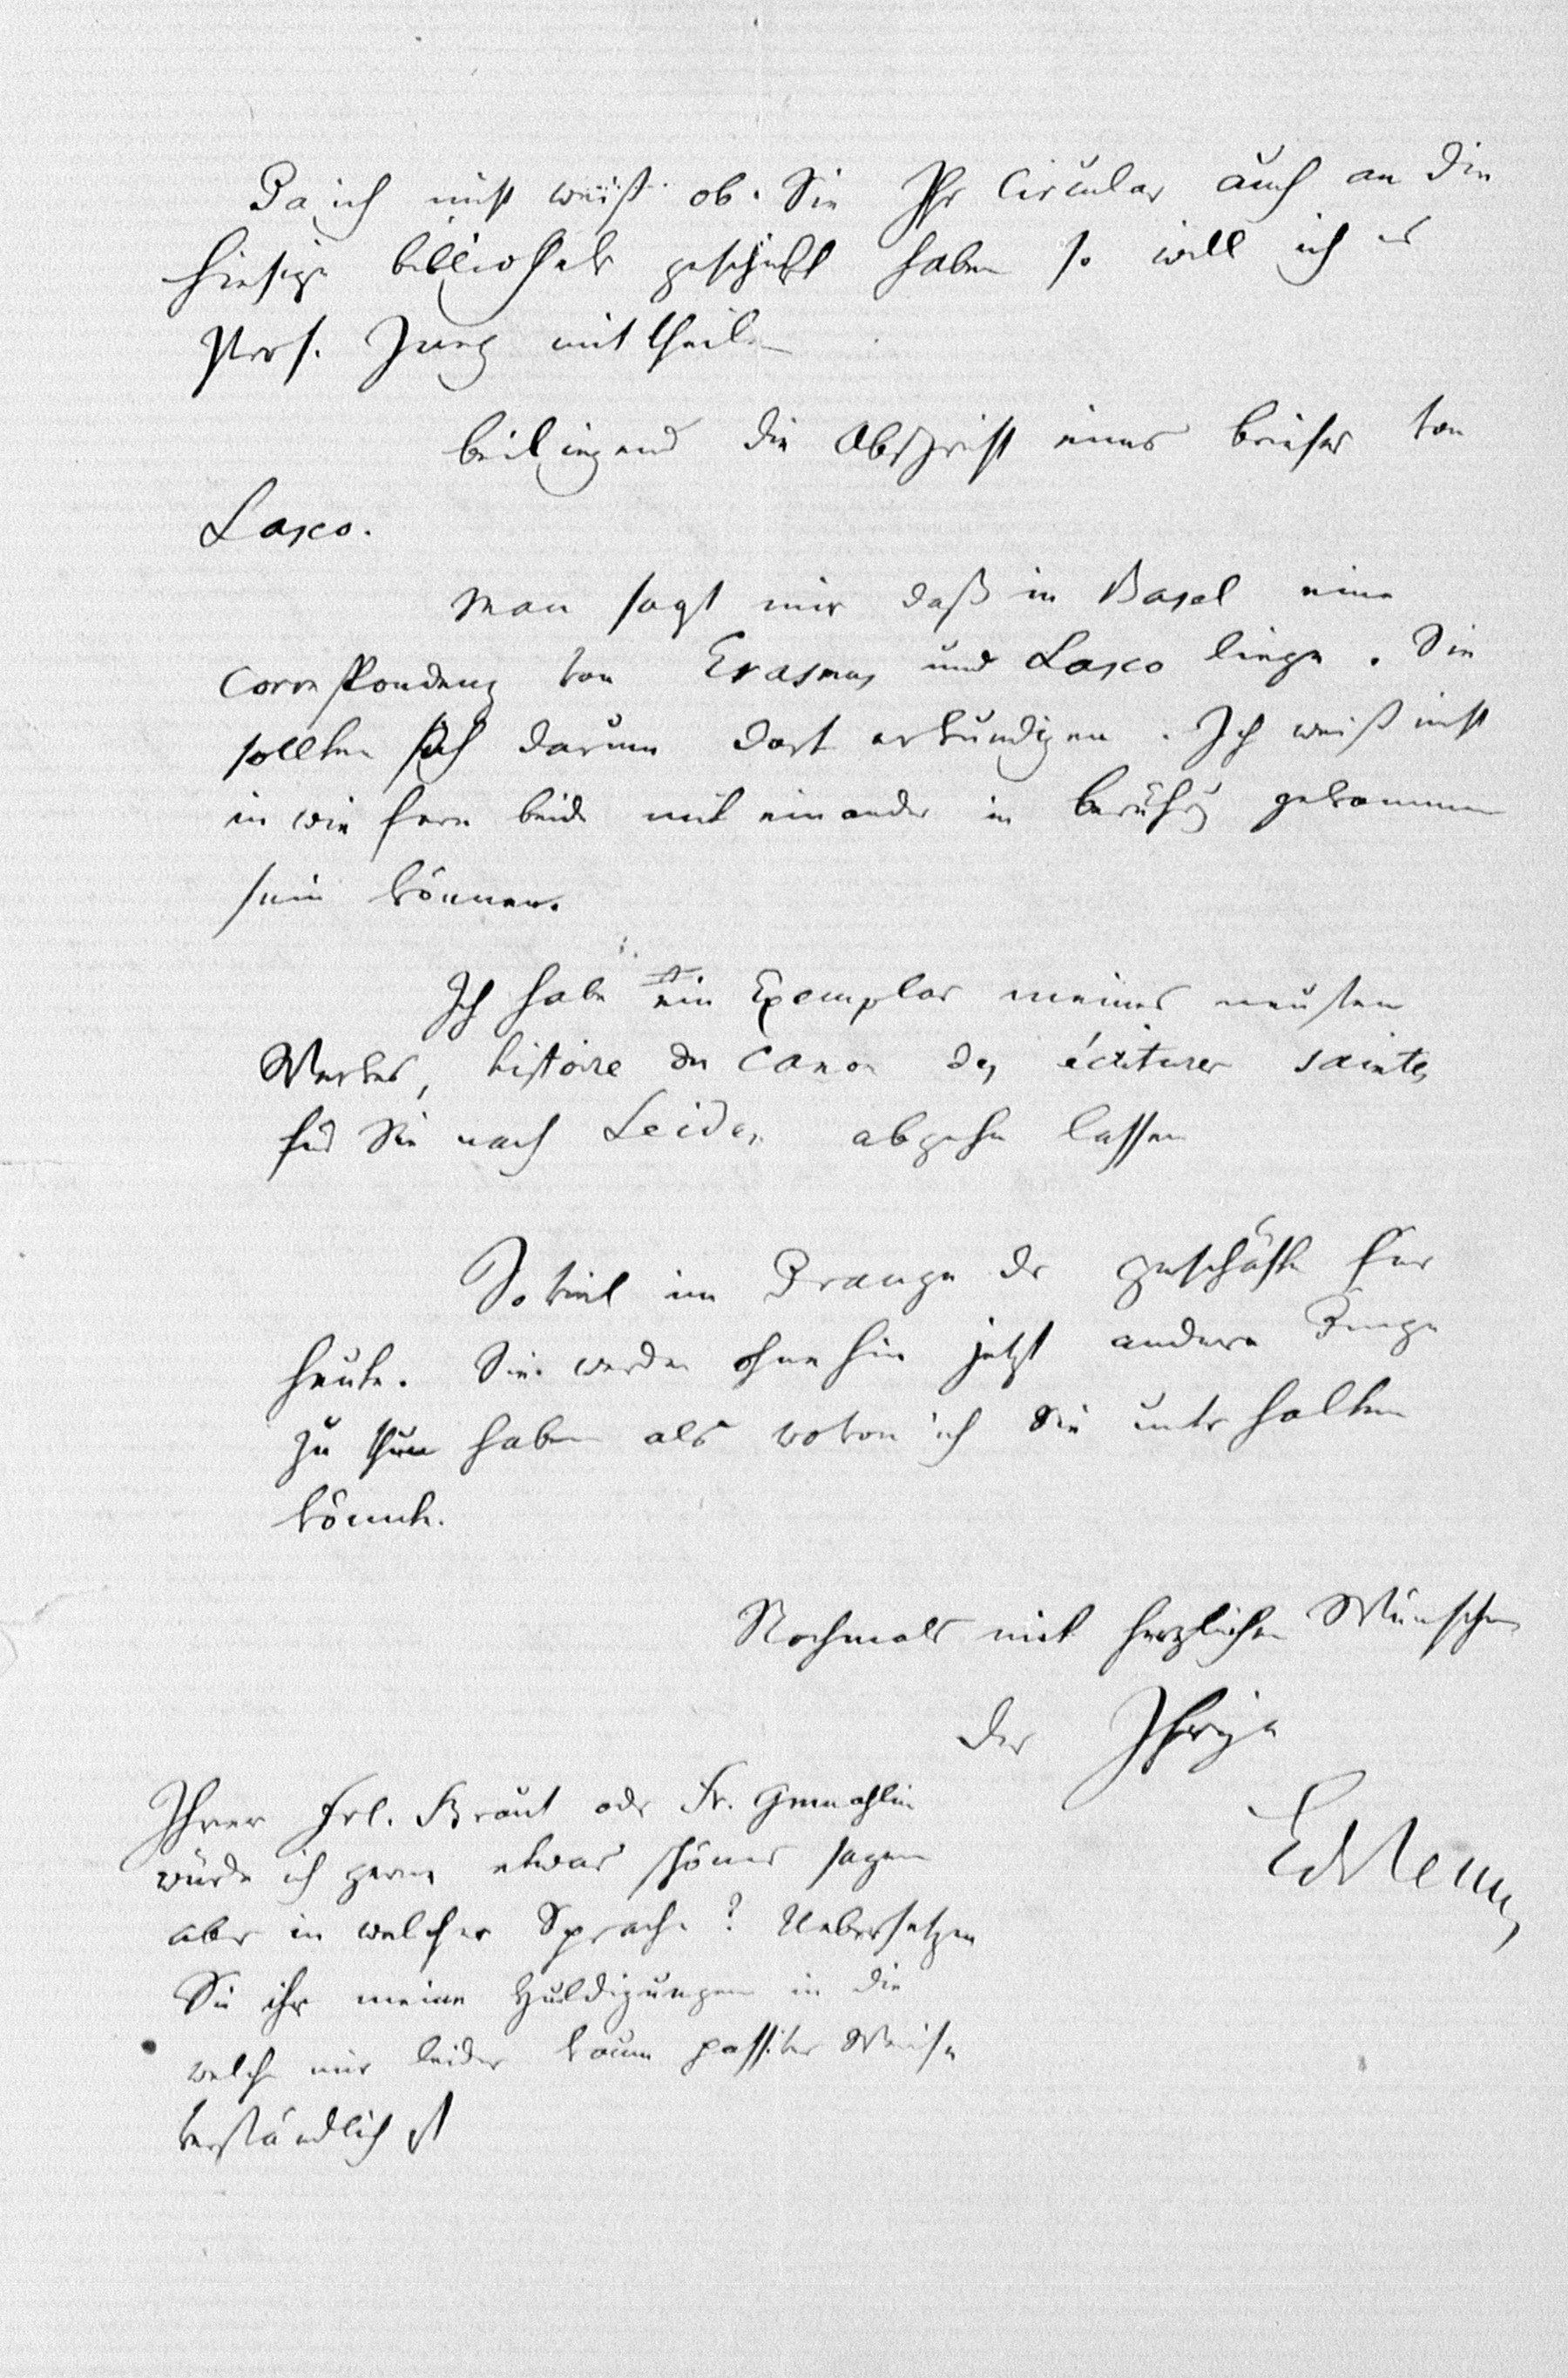 Da ich nicht weiß ob Sie Ihr Circular auch an die
hiesige bibliothek geschickt haben so will ich es
Prof. Jung mittheilen
beiliegend die Abschrift eines briefes von
Lasco.
Man sagt mir daß in Basel eine
Correspondenz von Erasmus und Lasco liege. Sie
sollten sich darum dort erkundigen. Ich weiß nicht
in wie fern beide mit einander in berührg gekommen
sein können.
Ich habe ein Exemplar meines neusten
Werkes, histoire du Canon des écritures saintes
für Sie nach Leiden abgehn lassen
So viel im Drange der geschäfte für
heute. Sie werden ohne hin jetzt andere Dinge
zu thun haben als wovon ich Sie unterhalten
könnte.
Nochmals mit herzlichen Wünschen
der Ihrige
EdReuss
Ihrer Frl. Braut oder Fr. Gemahlin
würde ich gerne etwas schönes sagen
aber in welcher Sprache? Uebersetzen
Sie ihr meine Huldigungen in die
welche mir leider kaum passiver Weise
verständlich ist